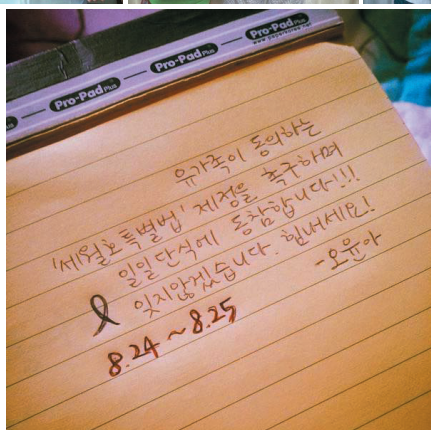 Pro-Pad Plus
Pro-Pad Plus
Pro-Pad Plus
유가족이 동의하는
'세월호특별법' 제정을 촉구하며
일일단식에 동참합니다!!!
잊지않겠습니다. 힘내세요!
-오윤아
8.24 ~ 8.25